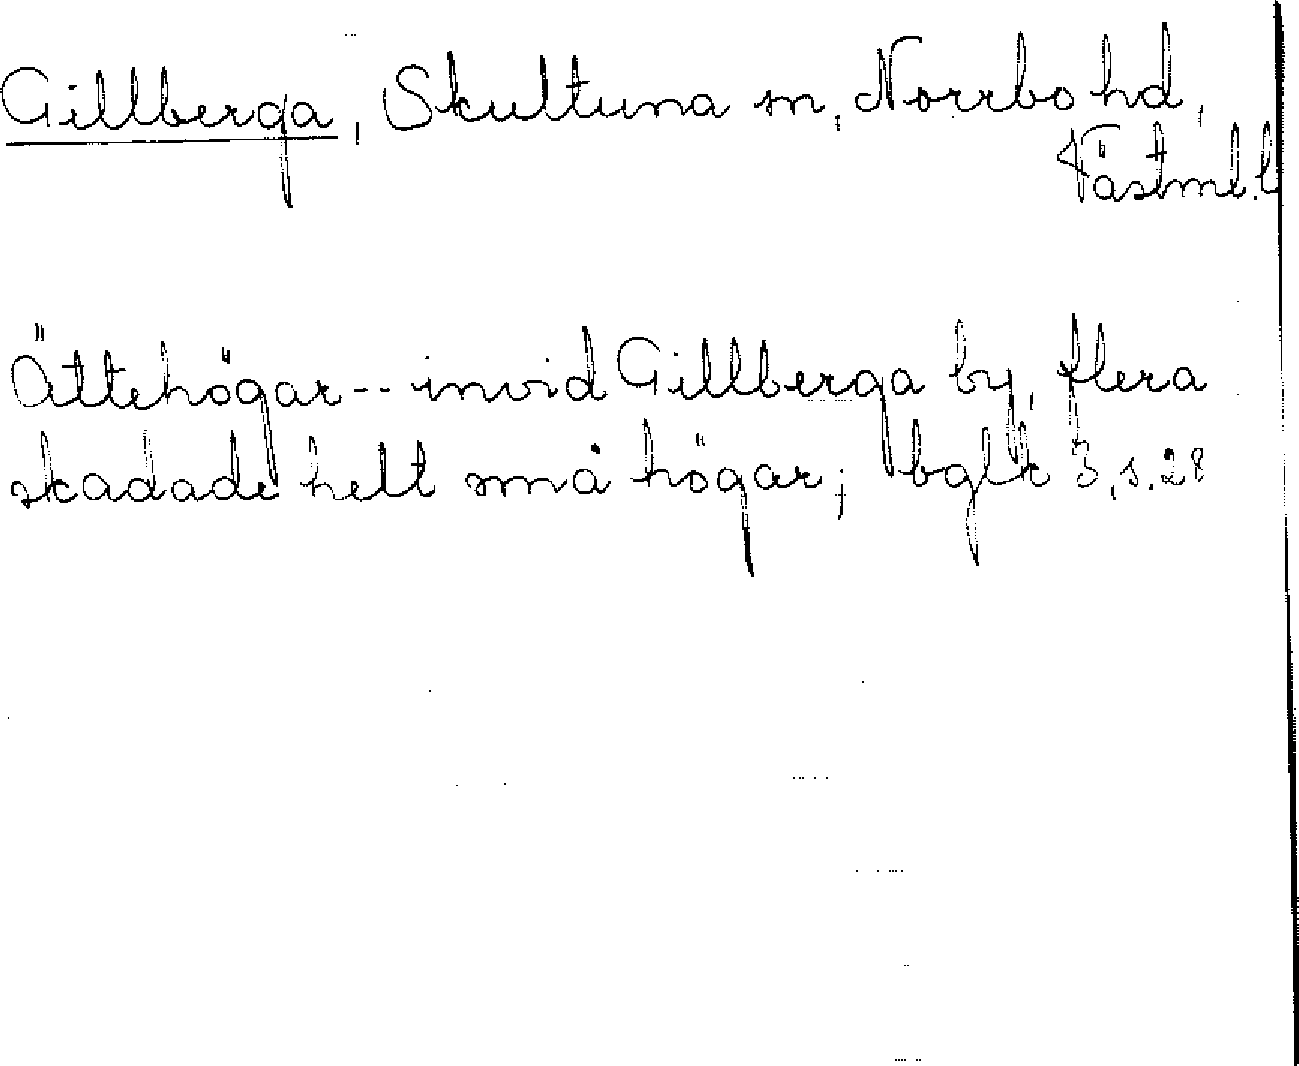 Gillberga, Skultuna sn, Norrbo hd,
Västml. l
Ättehögar -- invid Gillberga by, flera
skadade helt små högar; bglk 3, s. 28